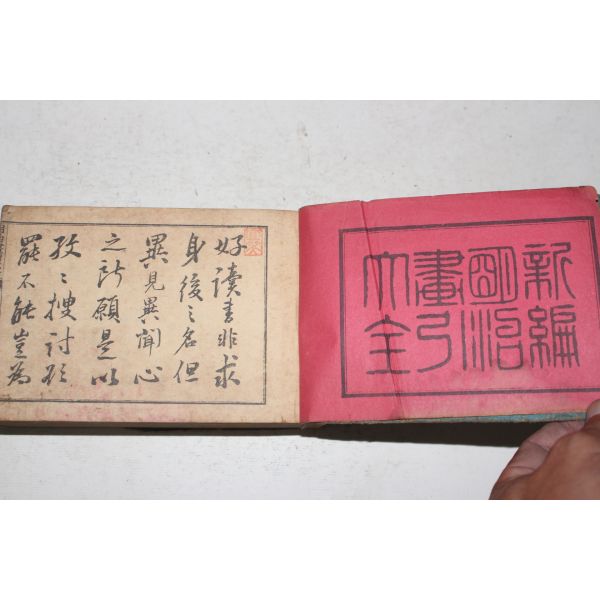 新編
朙治
畫引
大全
好讀書非求
身後之名但
異見異聞心
之所願是以
孜〻搜討欲
罷不能豈為